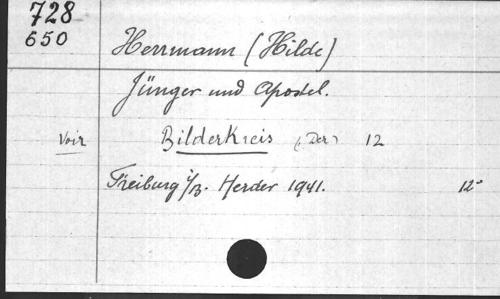 728
650
Herrmann (Hilde)
Jünger und Apostel.
Voir Bilderkreis (Der) 12
Freiburg i/B. Herder 1941. 12°